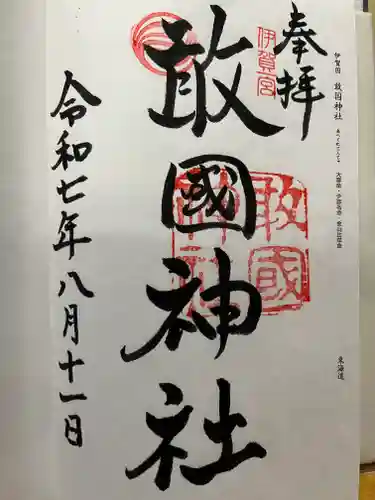 伊賀国 敢国神社
東海道
奉拝
伊賀一宮
敢國神社
敢國神社
令和七年八月十一日